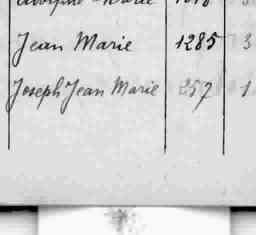 Jean Marie 1285 3
Joseph Jean Marie 257 1